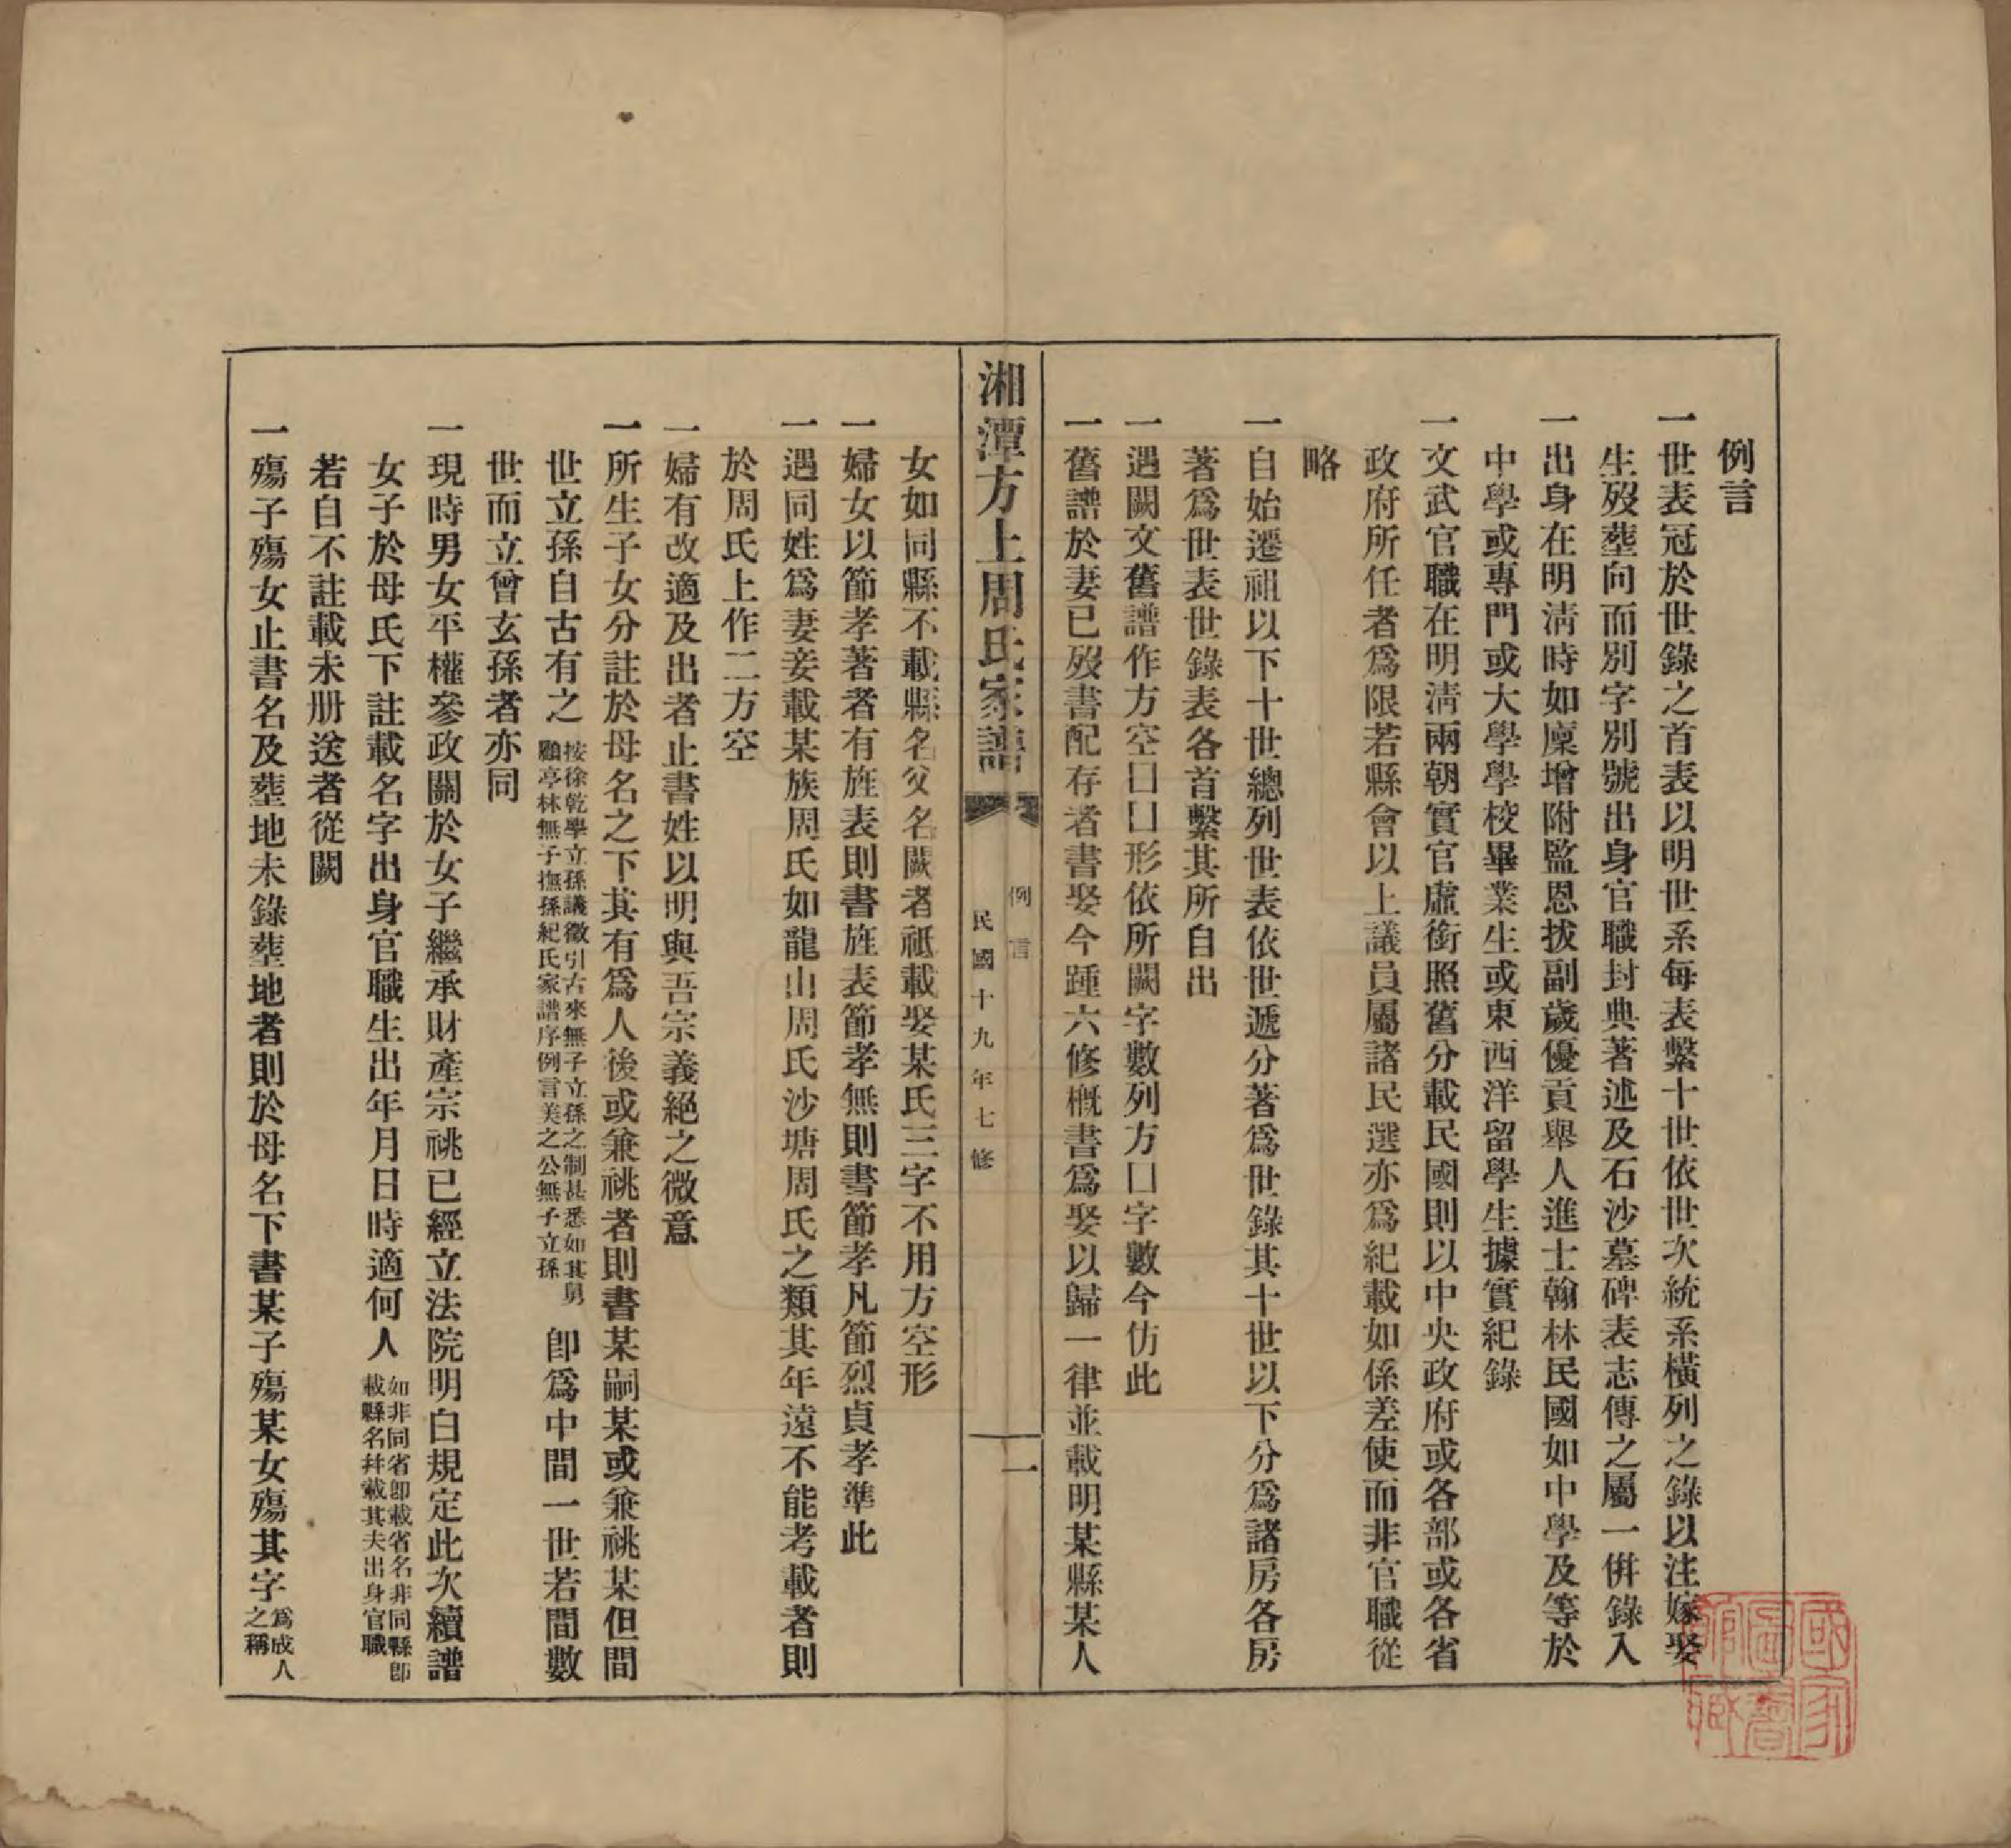 例言
一世表冠於世錄之首表以明世系每表繫十世依世次統系橫列之錄以注嫁娶
生歿塟向而別字別號出身官職封典著述及石沙墓碑表志傳之屬一併錄入
一出身在明淸時如廩增附監恩拔副歲優貢舉人進士翰林民國如中學及等於
中學或專門或大學學校畢業生或東西洋留學生據實紀錄
一文武官職在明淸兩朝實官虛銜照舊分載民國則以中央政府或各部或各省
政府所任者爲限若縣會以上議員屬諸民選亦爲紀載如係差使而非官職從
略
一自始遷祖以下十世總列世表依世遞分著爲世錄其十世以下分爲諸房各房
著爲世表世錄表各首繫其所自出
一遇闕文舊譜作方空囗囗形依所闕字數列方囗字數今仿此
一舊譜於妻已歿書配存者書娶今踵六修槪書爲娶以歸一律並載明某縣某人
湘潭方上周氏家譜
例言
民國十九年七修
一
女如同縣不載縣名父名闕者祗載娶某氏三字不用方空形
一婦女以節孝著者有旌表則書旌表節孝無則書節孝凡節烈貞孝準此
一遇同姓爲妻妾載某族周氏如龍山周氏沙塘周氏之類其年遠不能考載者則
於周氏上作二方空
一婦有改適及出者止書姓以明與吾宗義絕之微意
一所生子女分註於母名之下其有爲人後或兼祧者則書某嗣某或兼祧某但間
世立孫自古有之 按徐乾學立孫議徵引古來無子立孫之制甚悉如其舅
顧亭林無子撫孫紀氏家譜序例言美之公無子立孫 卽爲中間一世若間數
世而立曾玄孫者亦同
一現時男女平權參政關於女子繼承財產宗祧已經立法院明白規定此次續譜
女子於母氏下註載名字出身官職生出年月日時適何人 如非同省卽載省名非同縣卽
載縣名幷載其夫出身官職
若自不註載未册送者從闕
一殤子殤女止書名及塟地未錄塟地者則於母名下書某子殤某女殤其字 爲成人
之稱
國家圖書館藏